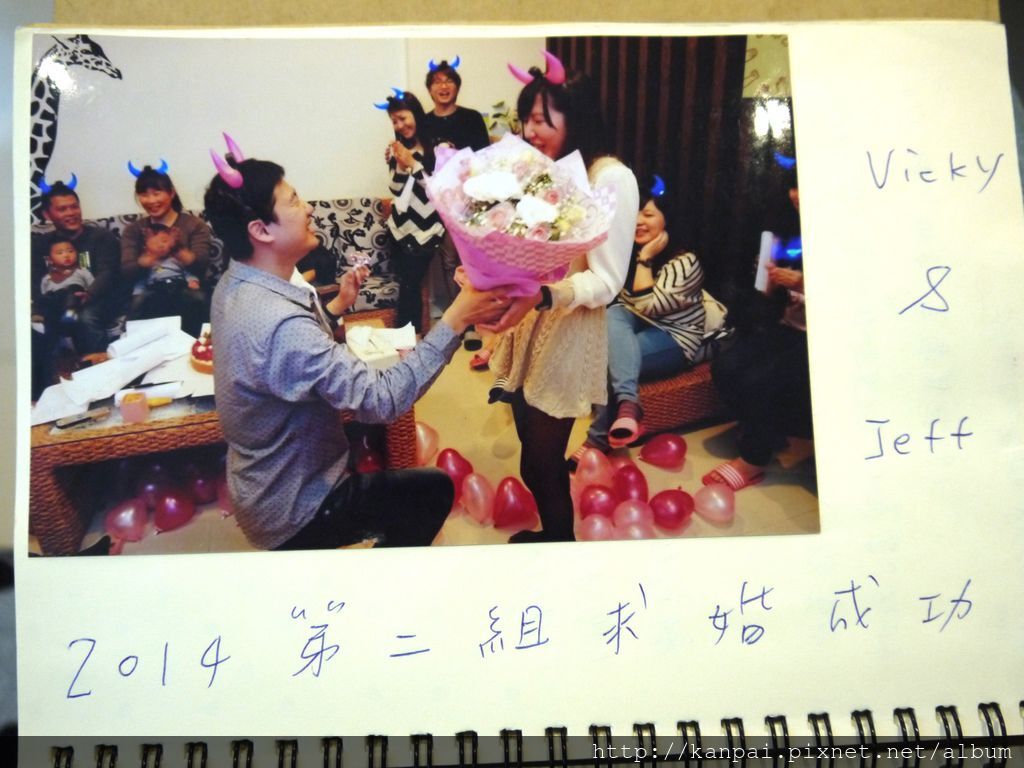 Vicky
&
Jeff
2014 "第"二組求婚成功
http://kanpai.pixnet.net/album